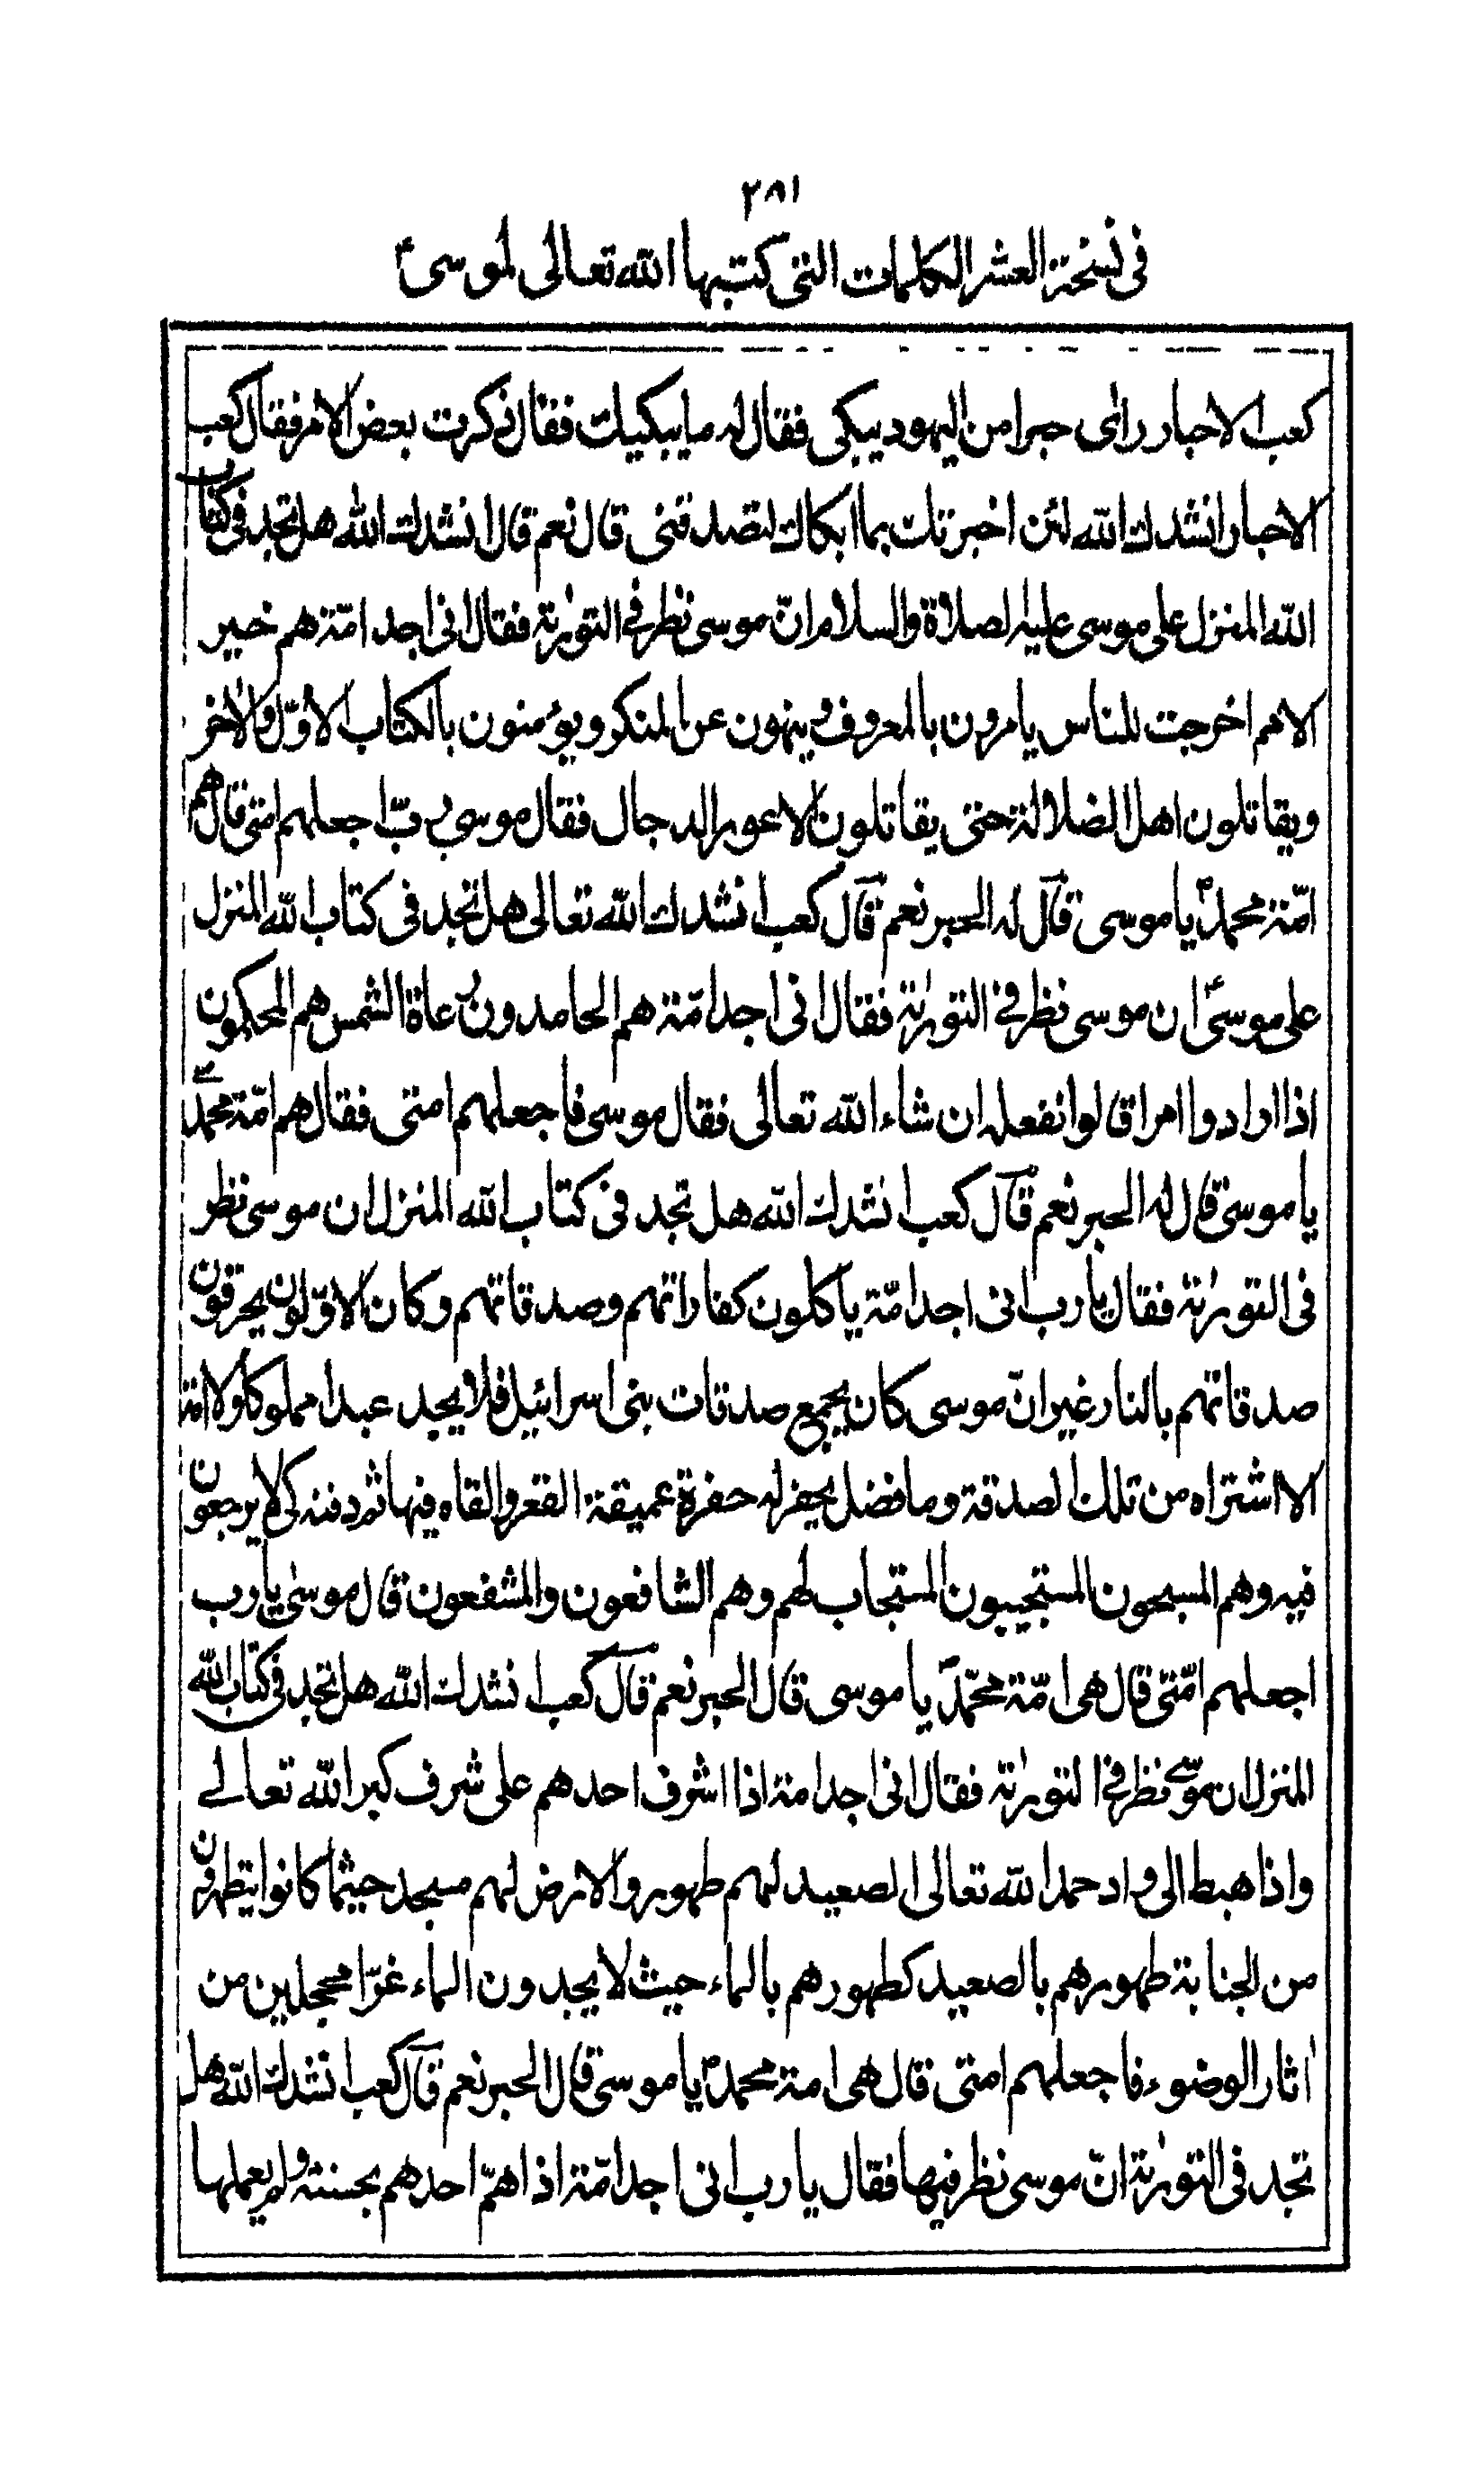 ٢٨١
في نسخة العشر الكلمات التي كتبها الله تعالى لموسىؑ
كعب الاحبار راى حبرا من اليهود يبكي فقال له ما يبكيك فقال ذكرت بعض الامر فقال كعب
الاحبار انشدك الله لئن اخبرتك بما ابكاك لتصدقني قال نعم قال انشدك الله هل تجد في كتاب
الله المنزل على موسى عليه الصلاة والسلام انّ موسى نظر في التورٰىة فقال اني اجد امّة هم خير
الامم اخرجت للناس يامرون بالمعروف وينهون عن المنكر ويؤمنون بالكتاب الاوّل والاٰخر
ويقاتلون اهل الضلالة حتى يقاتلون الاعور الدجال فقال موسى ربّ اجعلهم امتي قال هم
امّة محمدؐ يا موسى قال له الحبر نعم قال كعب انشدك الله تعالى هل تجد في كتاب الله المنزل
على موسىؑ ان موسى نظر في التورٰىة فقال اني اجد امّة هم الحامدون رعاة الشمس هم المحكمون
اذا ارادوا امرا قالوا نفعله ان شاء الله تعالى فقال موسى فاجعلهم امتي فقال هم امّة محمدؐ
يا موسى قال له الحبر نعم قال كعب انشدك الله هل تجد في كتاب الله المنزل ان موسى نظر
في التورٰىة فقال يا رب اني اجد امّة ياكلون كفاراتهم وصدقاتهم وكان الاوّلون يحرقون
صدقاتهم بالنار غير انّ موسى كان يجمع صدقات بني اسرائيل فلا يجد عبدا مملوكا ولا امة
الا اشتراه من تلك الصدقة وما فضل يحفر له حفرة عميقة القعر والقاه فيها ثم دفنه كي لا يرجعون
فيه وهم المسبحون المستجيبون المستجاب لهم وهم الشافعون والمشفعون قال موسى يا رب
اجعلهم امّتي قال هي امّة محمّدؐ يا موسى قال الحبر نعم قال كعب انشدك الله هل تجد في كتاب الله
المنزل ان موسى نظر في التورٰىة فقال اني اجد امة اذا اشرف احدهم على شرف كبر الله تعالى
واذا هبط الى واد حمد الله تعالى الصعيد لهم طهور والارض لهم مسجد حيثما كانوا يتطهرون
من الجنابة طهورهم بالصعيد كطهورهم بالماء حيث لا يجدون الماء غرّا محجلين من
اٰثار الوضوء فاجعلهم امتي قال هي امة محمدؐ يا موسى قال الحبر نعم قال كعب انشدك الله هل
تجد في التورٰىة انّ موسى نظر فيها فقال يا رب اني اجد امّة اذا همّ احدهم بحسنة ولم يعملها